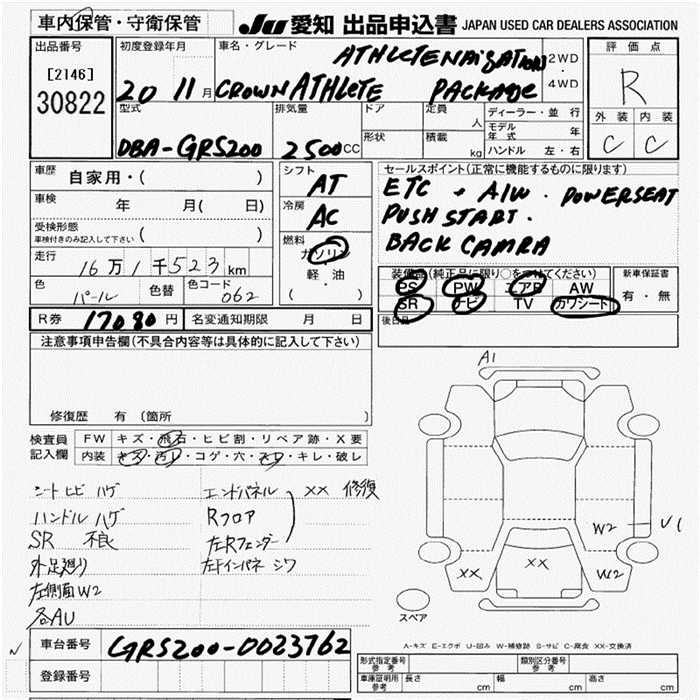 車内保管・守衛保管
JU 愛知 出品申込書 JAPAN USED CAR DEALERS ASSOCIATION
出品番号
[2146]
30822
初度登録年月
20 11月
車名・グレード
ATHLETE NAIGATION
CROWN ATHLETE PACKAGE
2WD
・
4WD
評価点
R
外装 内装
C C
型式
DBA-GRS200
排気量
2500cc
ドア
形状
定員
人
積載
kg
ディーラー・並行
モデル年式 年
ハンドル 左・右
車歴
自家用・( )
車検 年 月( 日)
受検形態
車検付きのみ記入して下さい ( )
走行
16万1千523km
色
パール
色替
色コード
062
シフト
AT
冷房
AC
燃料
ガソリン
軽・油
( )
セールスポイント(正常に機能するものに限ります)
ETC + A/W . POWERSEAT
PUSH START .
BACK CAMRA
装備品(純正品に限り○をつけてください)
PS PW エアB AW
SR ナビ TV カワシート
新車保証書
有・無
後日品
R券 17080円 名変通知期限 月 日
注意事項申告欄(不具合内容等は具体的に記入して下さい)
修復歴 有(箇所 )
検査員
記入欄
FW キズ・飛石・ヒビ割・リペア跡・X要
内装 キズ・汚レ・コゲ・穴・スレ・キレ・破レ
シートヒビ ハゲ
ハンドル ハゲ
SR 不良
外足廻り
左側面W2
各AU
エンドパネル
Rフロア
左Rフェンダー
XX 修復
左Fインパネ シワ
A1
W2
U1
XX
XX
W2
スペア
A-キズ E-エクボ U-凹み W-補修跡 S-サビ C-腐食 XX-交換済
車台番号
GRS200-0023762
登録番号
型式指定番号
参考
類別区分番号
参考
車庫証明用
参考
長さ cm 幅 cm 高さ cm